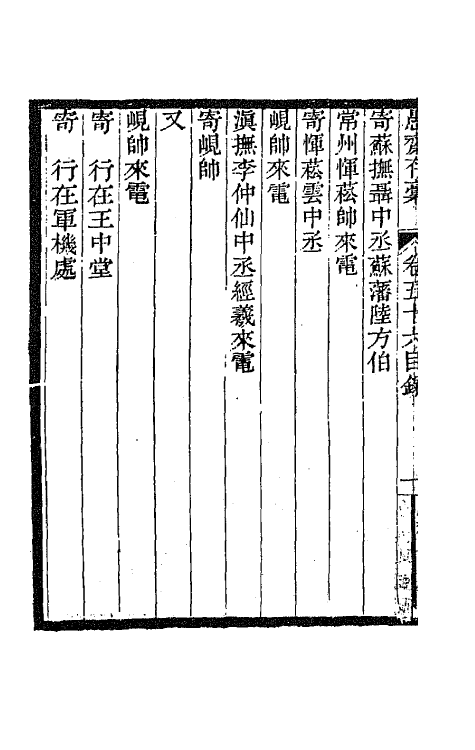 愚齋存稾 卷五十六目錄
寄蘇撫聶中丞蘇藩陸方伯
常州惲菘帥來電
寄惲菘雲中丞
峴帥來電
滇撫李仲仙中丞經羲來電
寄峴帥
又
峴帥來電
寄 行在王中堂
寄 行在軍機處